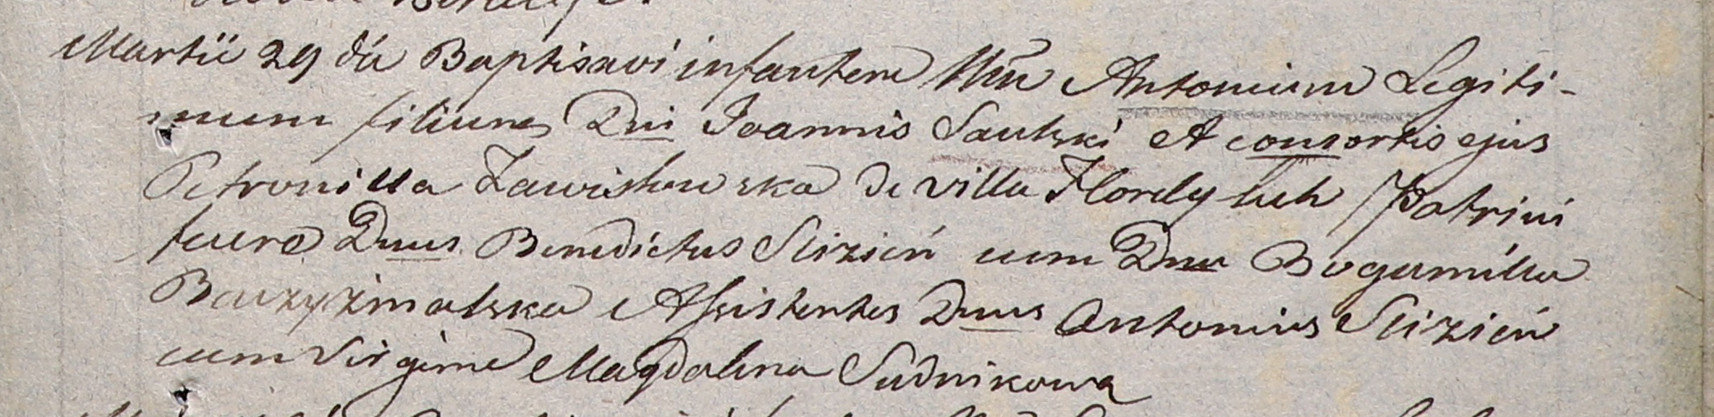 Martii 29 die Baptisavi infantem Nnē Antonium Legiti-
mum filium Dni Joannis Sautski et consortis ejus
Petronilla Zawishewska de villa Hordyluh Patrini
fuere Dnus Benedictus Slizień cum Dna Bogumilla
Assistentes Dnus Antonius Slizień
cum Virgine Magdalena Sudnikowa